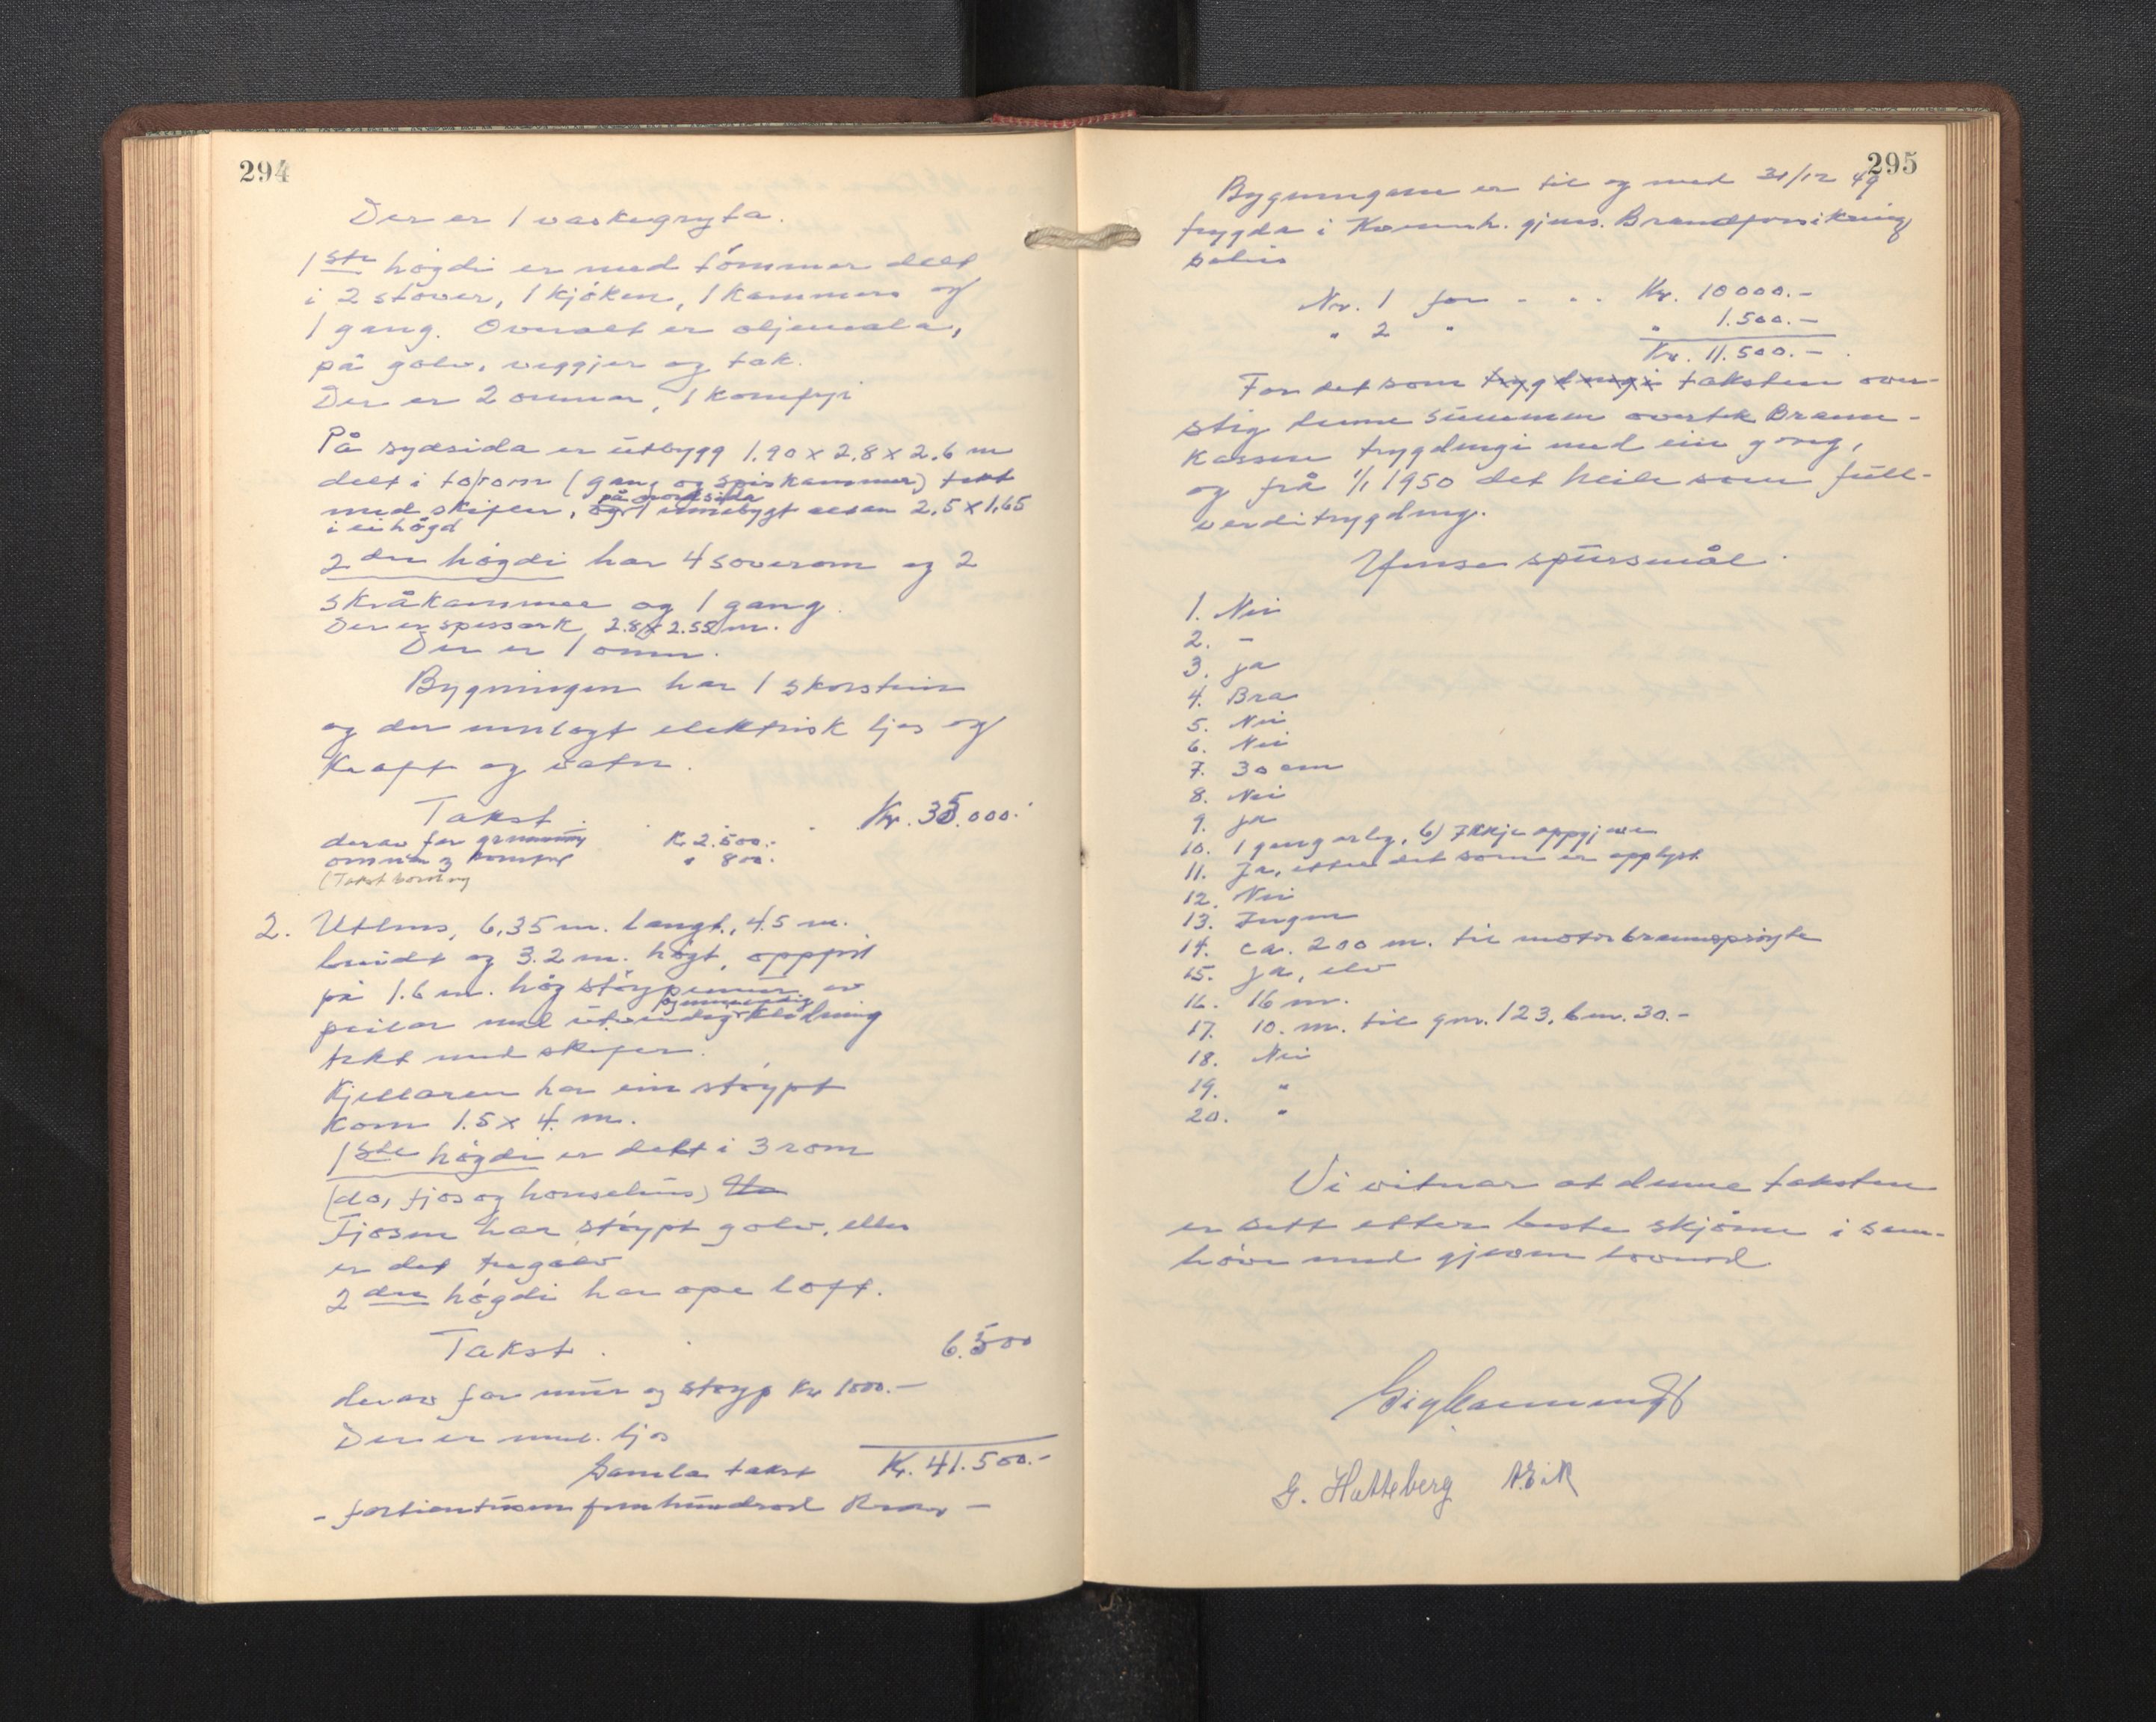 294
Der er 1 vaskegryta.
1ste högdi er med tömmer delt
i 2 stover, 1 kjöken, 1 kammers og
1 gang. Overalt er oljemala,
på golv, veggjer og tak.
Der er 2 omnar, 1 komfyr
På sydsida er utbygg 1.90 x 2.8 x 2.6 m
delt i to rom (gang og spiskammer) tekt
på nordsida
med skifer, og 1 innebygt 2.5 x 1.65
i ei högd
2dre högdi har 4 soverom og 2
skråkammer og 1 gang.
Der er 2.8 x 2.55 m.
Der er 1 omn.
Bygningen har 1 skorstein
og der innlagt elektrisk ljos og
kraft og vatn.
Takst . . . Kr. 35.000.-
derav for grunnmur Kr. 2.500.-
omnar og komfyr " 800.-
(Takst
2. Uthus, 6,35 m. langt, 4.5 m.
breidt og 3.2 m. högt, oppfört
på 1.6 m. hög støypemur av
peilar med utvendig kledning
tekt med skifer.
Kjellaren har ein støypt
rom 1.5 x 4 m.
1ste högdi er delt i 3 rom
(do, fjos og honsehus)
Fjosen har støypt golv, elles
er det tregolv
2dre högdi har ope loft.
Takst . . 6.500
derav for mur og støyp Kr 1000.-
Der er innl. ljos
Samla takst Kr. 41.500.-
- fortientusen femhundrad kronor -
295
Bygningane er til og med 31/12 49
trygda i Kvinnh. gjens. Brandforsikring
selius
Nr. 1 for - . . Kr. 10000.-
" 2 " " 1.500.-
Kr. 11.500.-
For det som trygdingi taksten over-
stig denne summen overtek Brann-
kassen trygdingi med ein gong,
og frå 1/1 1950 det heile som full-
verditrygding.
Ymse spursmål.
1. Nei
2. -
3. Ja
4. Bra
5. Nei
6. Nei
7. 30 cm
8. Nei
9. Ja
10. 1 gang årleg, b) Ikkje oppgjeve
11. Ja, etter det som er opplyst
12. Nei
13. Ingen
14. ca. 200 m. til motorbrannsprøyte
15. Ja, elv
16. 16 m.
17. 10. m. til gnr. 123, bnr. 30.-
18. Nei
19. "
20. "
Vi vitnar at denne taksten
er sett etter beste skjöne i sam-
høve med gjevem lovord
G. Hatteberg